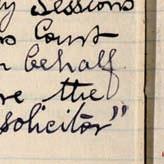 y Sessions
Court
behalf
re the
solicitor"